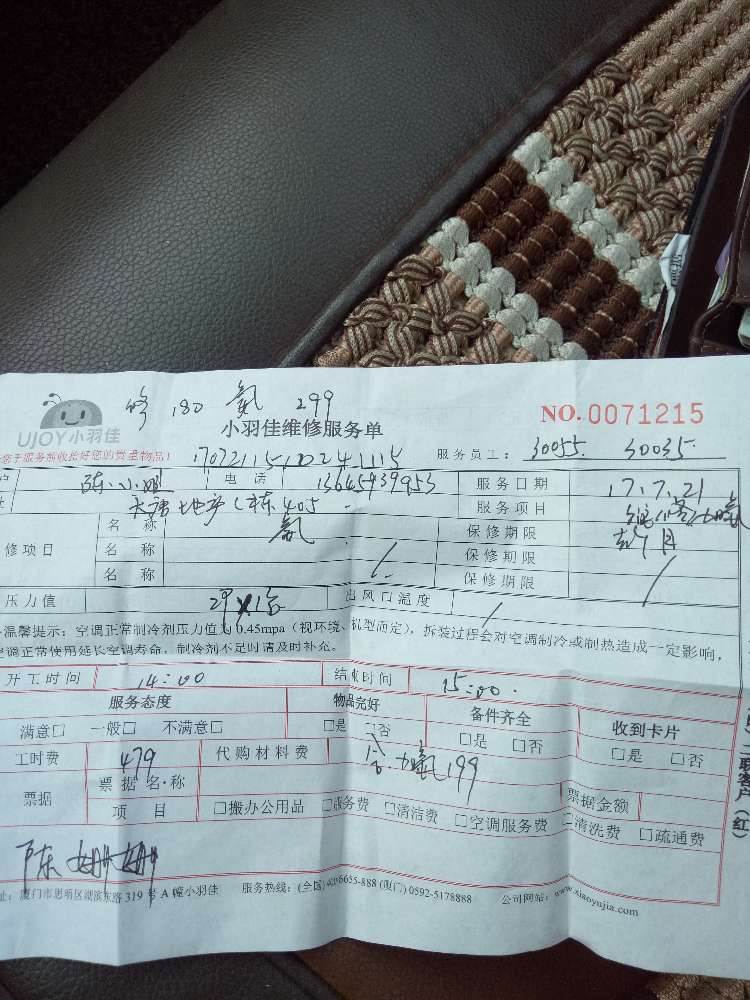 修 180 氨 299
UJOY小羽佳
小羽佳维修服务单
NO.0071215
服务前收拾好您的贵重物品!
服务员工: 30055 30035
陈小姐 电话 13645939953 服务日期 17.7.21
大唐地产 405 服务项目
名称 保修期限
修项目 名称 保修期限
名称 保修期限
压力值 出风口温度
温馨提示: 空调正常制冷剂压力值为0.45mpa (视环境、机型而定), 拆装过程会对空调制冷或制热造成一定影响,
空调正常使用延长空调寿命, 制冷剂不足时请及时补充。
开工时间 14:00 结束时间 15:00
服务态度 物品完好 备件齐全 收到卡片
满意□ 一般□ 不满意□ □是 □否 □是 □否 □是 □否
工时费 479 代购材料费 199
票据 票据名称 票据金额
项目 □搬办公用品 □服务费 □清洁费 □空调服务费 □清洗费 □疏通费
陈姗姗
址: 厦门市思明区湖滨东路 319 号 A 幢小羽佳 服务热线: (全国)400-6655-888 (厦门) 0592-5178888 公司网站: www.xiaoyujia.com
联客户(红)